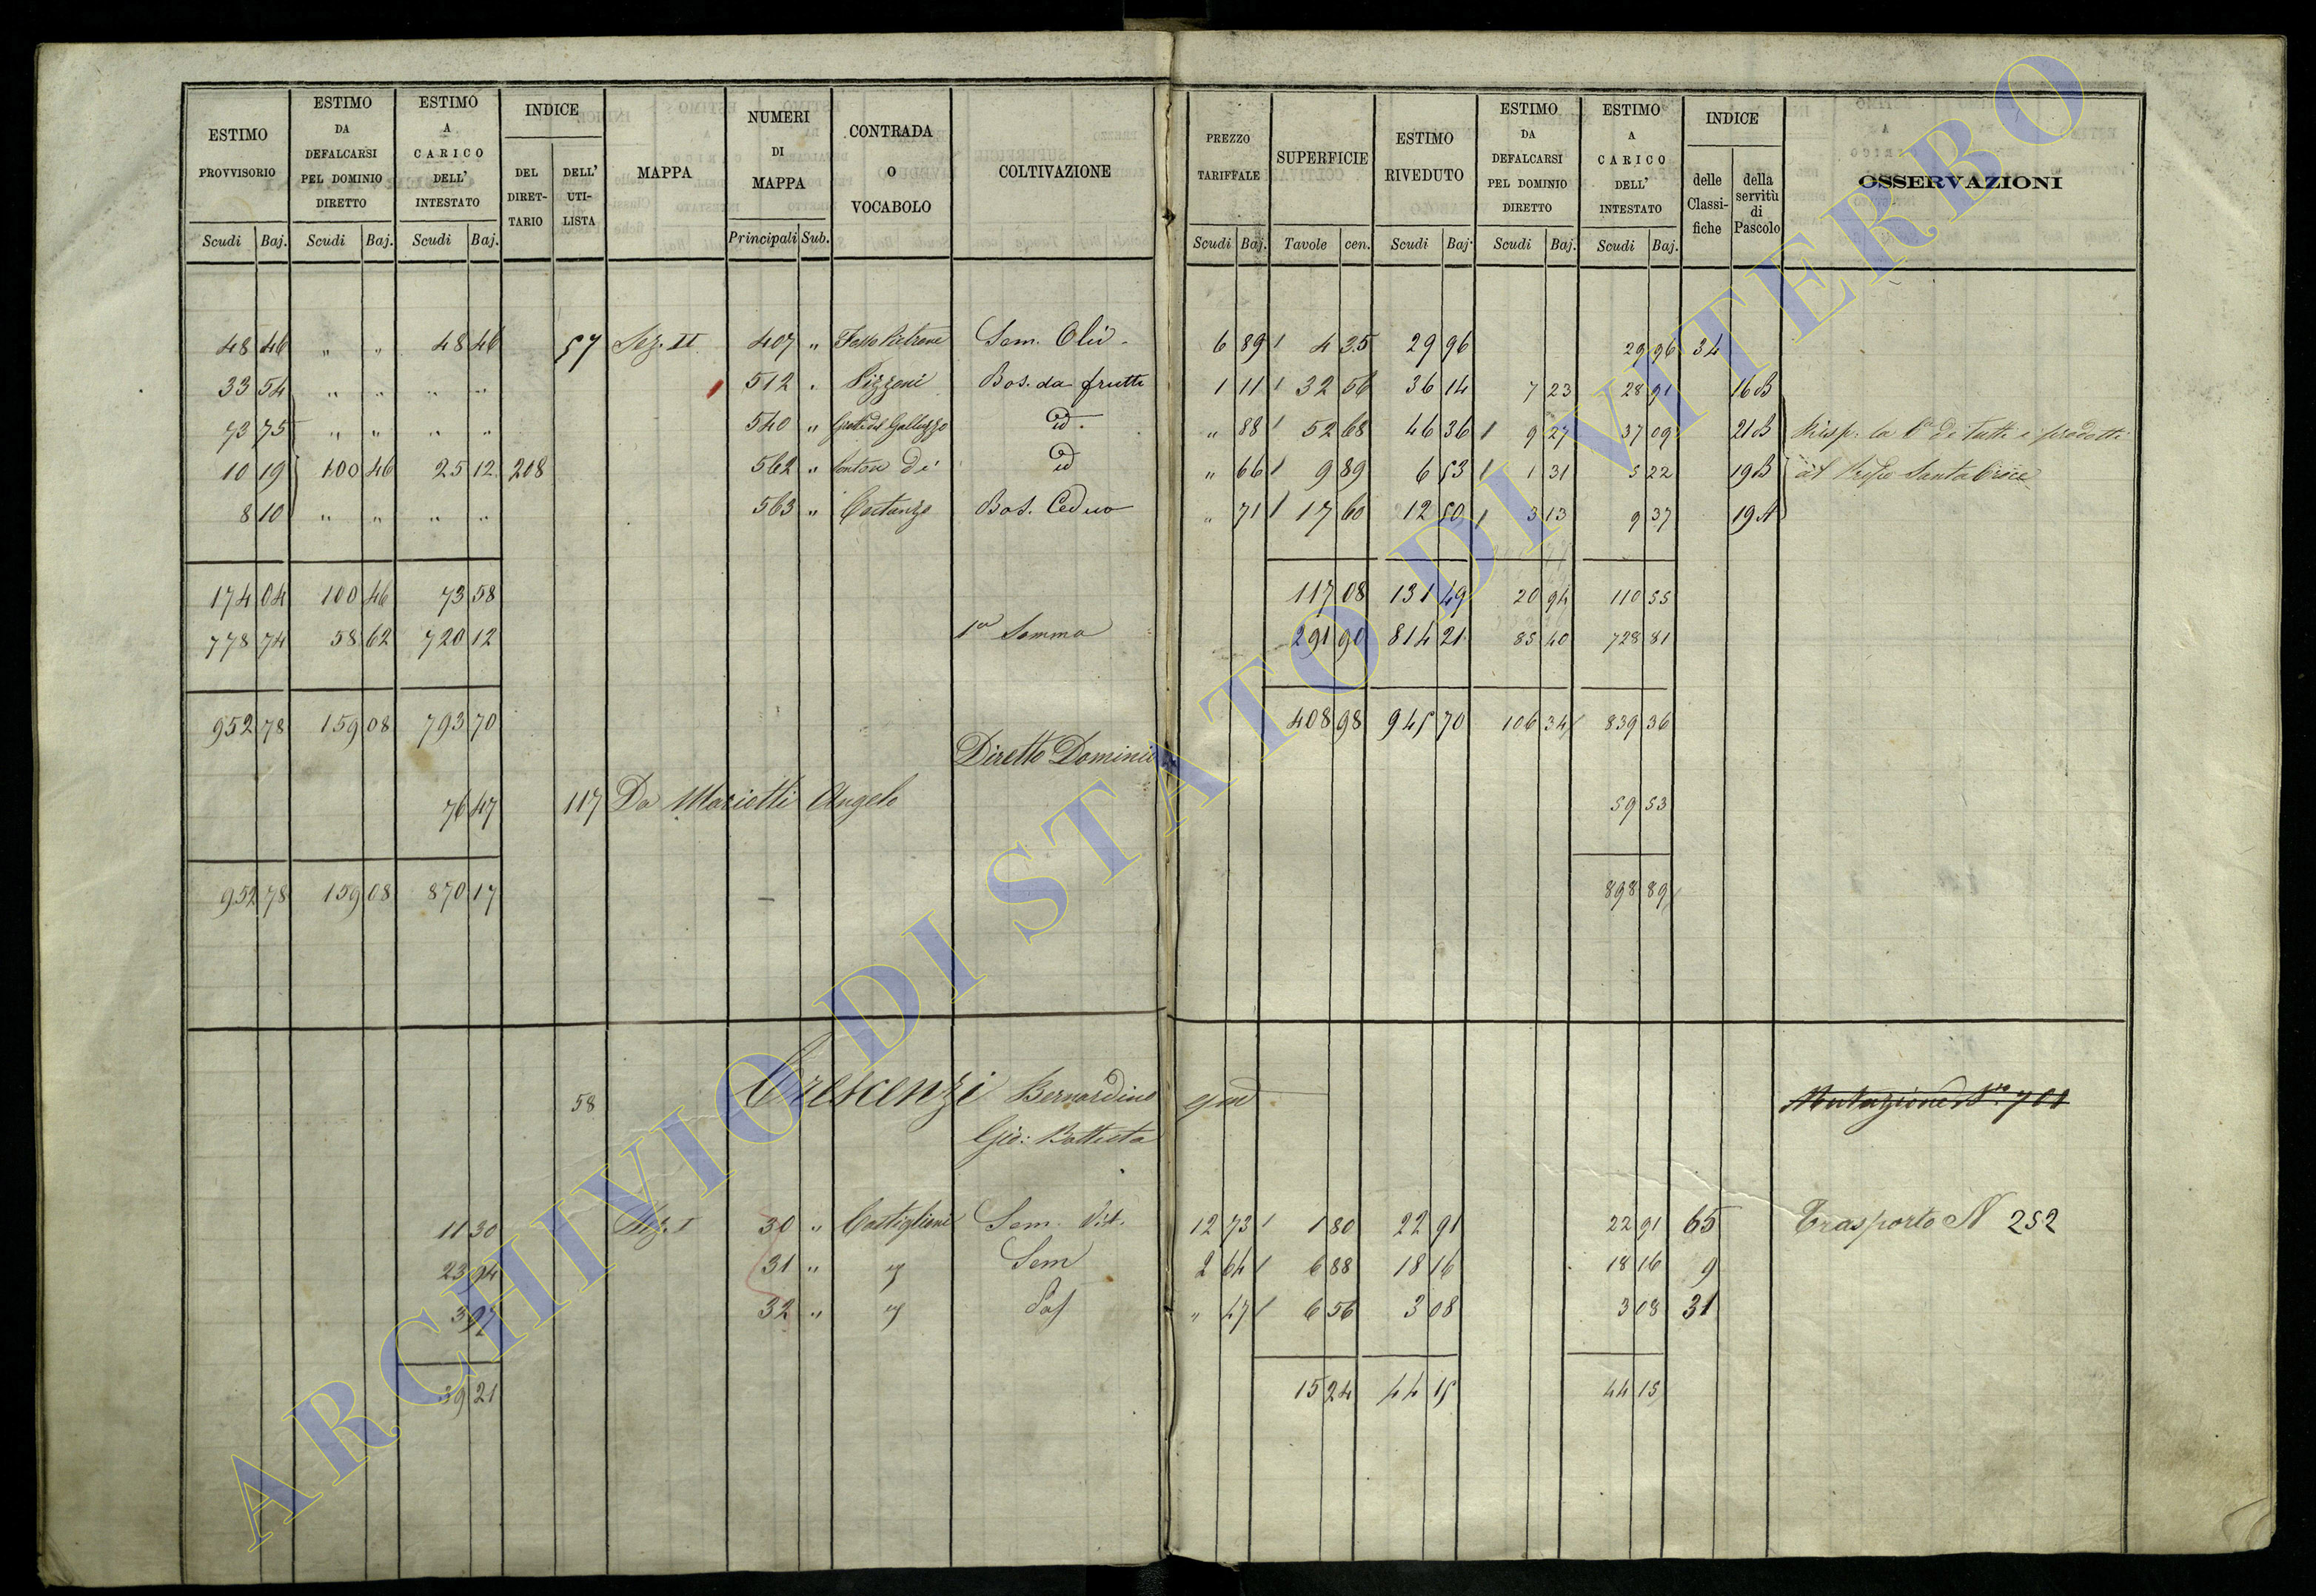 ESTIMO PROVVISORIO Scudi Baj. ESTIMO DA DEFALCARSI PEL DOMINIO DIRETTO Scudi Baj. ESTIMO A CARICO DELL' INTESTATO Scudi Baj. INDICE DEL DIRET-TARIO DELL' UTI-LISTA MAPPA NUMERI DI MAPPA Principali Sub. CONTRADA O VOCABOLO COLTIVAZIONE PREZZO TARIFFALE Scudi Baj. SUPERFICIE Tavole cen. ESTIMO RIVEDUTO Scudi Baj. ESTIMO DA DEFALCARSI PEL DOMINIO DIRETTO Scudi Baj. ESTIMO A CARICO DELL' INTESTATO Scudi Baj. INDICE delle Classi-fiche della servitù di Pascolo OSSERVAZIONI
48 46 " " 48 46 57 Sez. II 407 " Sem. Oliv. 6 89 4 35 29 96 29 96 34
33 54 " " " " 512 " Pizzoni Bos. da frutti 1 11 32 56 36 14 7 23 28 91 16 B
73 75 " " " " 540 " id. " 88 52 68 46 36 9 27 37 09 21 B Risp. la di tutti i prodotti
10 19 100 46 25 12 208 562 " id " 66 9 89 6 53 1 31 5 22 19 B Santa Croce
8 10 " " " " 563 " Costanzo Bos. Ceduo " 71 17 60 12 50 3 13 9 37 19 A
174 04 100 46 73 58 117 08 131 49 20 94 110 55
778 74 58 62 720 12 1a Somma 291 90 814 21 85 40 728 81
952 78 159 08 793 70 408 98 945 70 106 34 839 36
Diretto Dominio
76 47 117 Da Mariotti Angelo 59 53
952 78 159 08 870 17 898 89
58 Crescenzi Bernardino qm Mutazione N. 701
Gio: Battista
11 30 Sez. I 30 " Castiglioni Sem. Vit. 12 73 1 80 22 91 22 91 65 Trasporto N 252
23 94 31 " Sem 2 64 6 88 18 16 18 16 9
3 97 32 " Pas " 47 6 56 3 08 3 08 31
39 21 15 24 44 15 44 15
ARCHIVIO DI STATO DI VITERBO